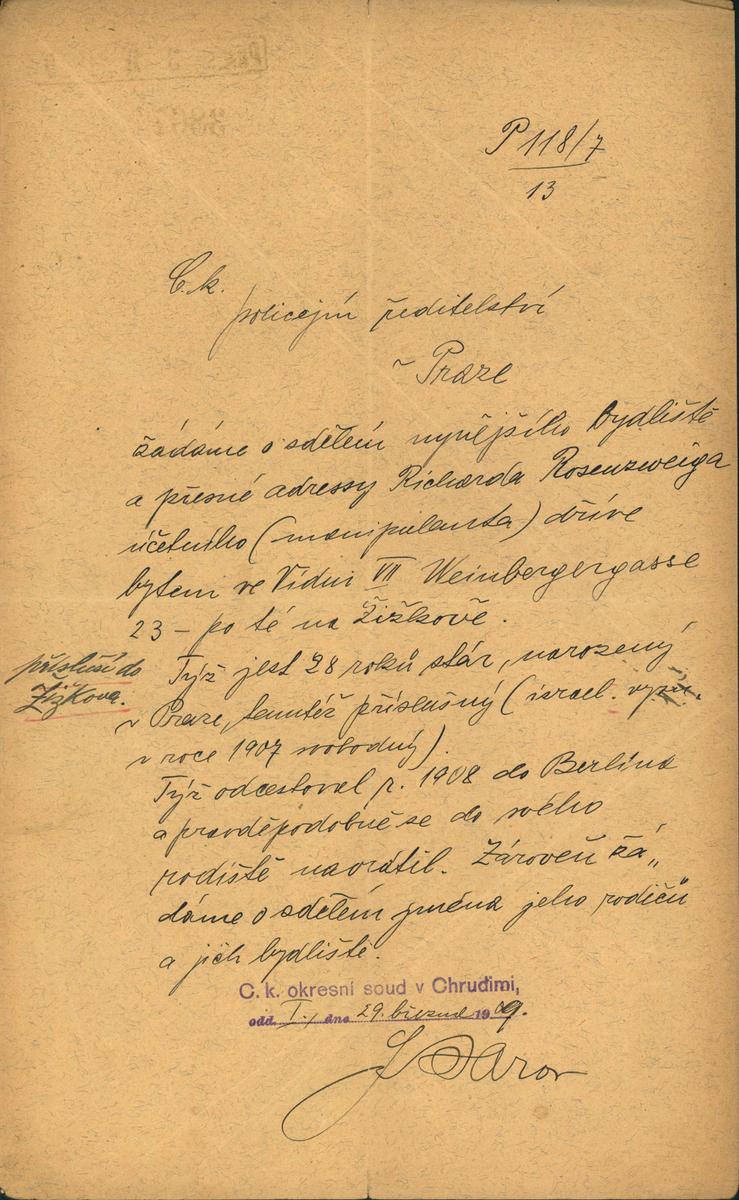 P 118/7
13
C. k.
policejní ředitelství
v Praze
žádáme o sdělení nynějšího bydliště
a přesné adressy Richarda Rosenzweiga
účetního (manipulanta) dříve
bytem ve Vídni VII Weinbergergasse
23 – po té na Žižkově.
přísluší do
Žižkova.
Týž jest 28 roků stár, narozený
v Praze, tamtéž příslušný (israel. vyzn.
v roce 1907 svobodný).
Týž odcestoval r. 1908 do Berlína
a pravděpodobně se do svého
rodiště navrátil. Zároveň žá„
dáme o sdělení jména jeho rodičů
a jich bydliště.
C. k. okresní soud v Chrudimi,
odd. I., dne 29. března 1909.